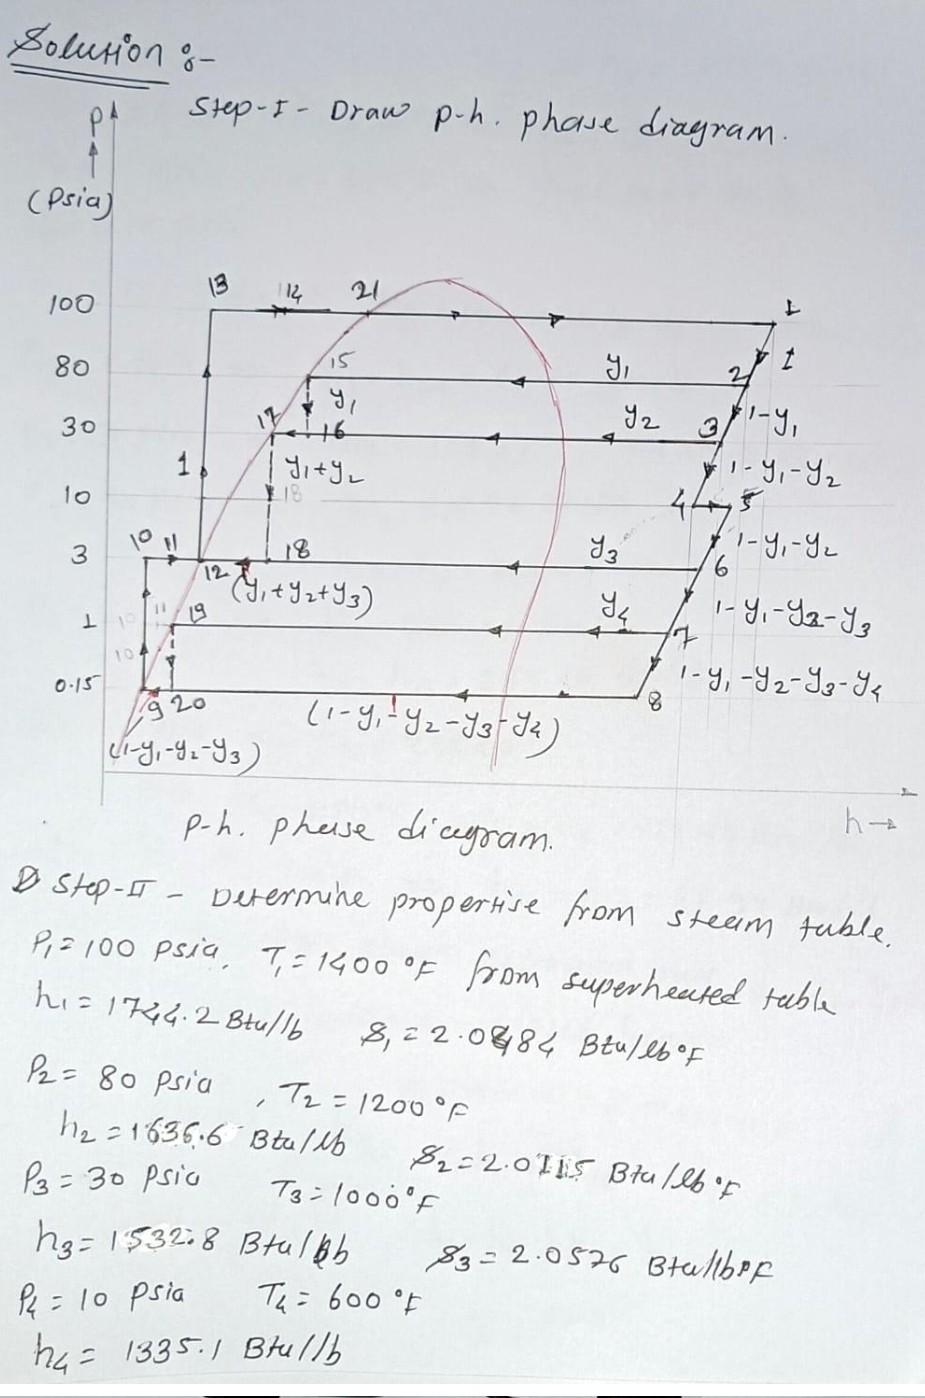 Solution :-
Step-I - Draw p-h. phase diagram.
P
(Psia)
13 14 21 1
100
80 15 y₁ 2 1
y₁ 1-y₁
30 17 16 y₂ 3
1 y₁+y₂ 1-y₁-y₂
10 18 4 5
10 11 1-y₁-y₂
3 12 18 y₃ 6
(y₁+y₂+y₃)
1 10 11 19 y₄ 7 1-y₁-y₂-y₃
10
0.15 9 20 8 1-y₁-y₂-y₃-y₄
(1-y₁-y₂-y₃-y₄)
(1-y₁-y₂-y₃)
h→
p-h. phase diagram.
Step-II - Determine propertise from steam table.
P₁= 100 psia, T₁= 1400 °F from superheated table
h₁= 1744.2 Btu/lb s₁= 2.0484 Btu/lb°F
P₂= 80 psia , T₂= 1200°F
h₂=1636.6 Btu/lb s₂=2.0115 Btu/lb°F
P₃= 30 psia T₃=1000°F
h₃=1532.8 Btu/lb s₃=2.0526 Btu/lb°F
P₄=10 psia T₄=600°F
h₄= 1335.1 Btu/lb